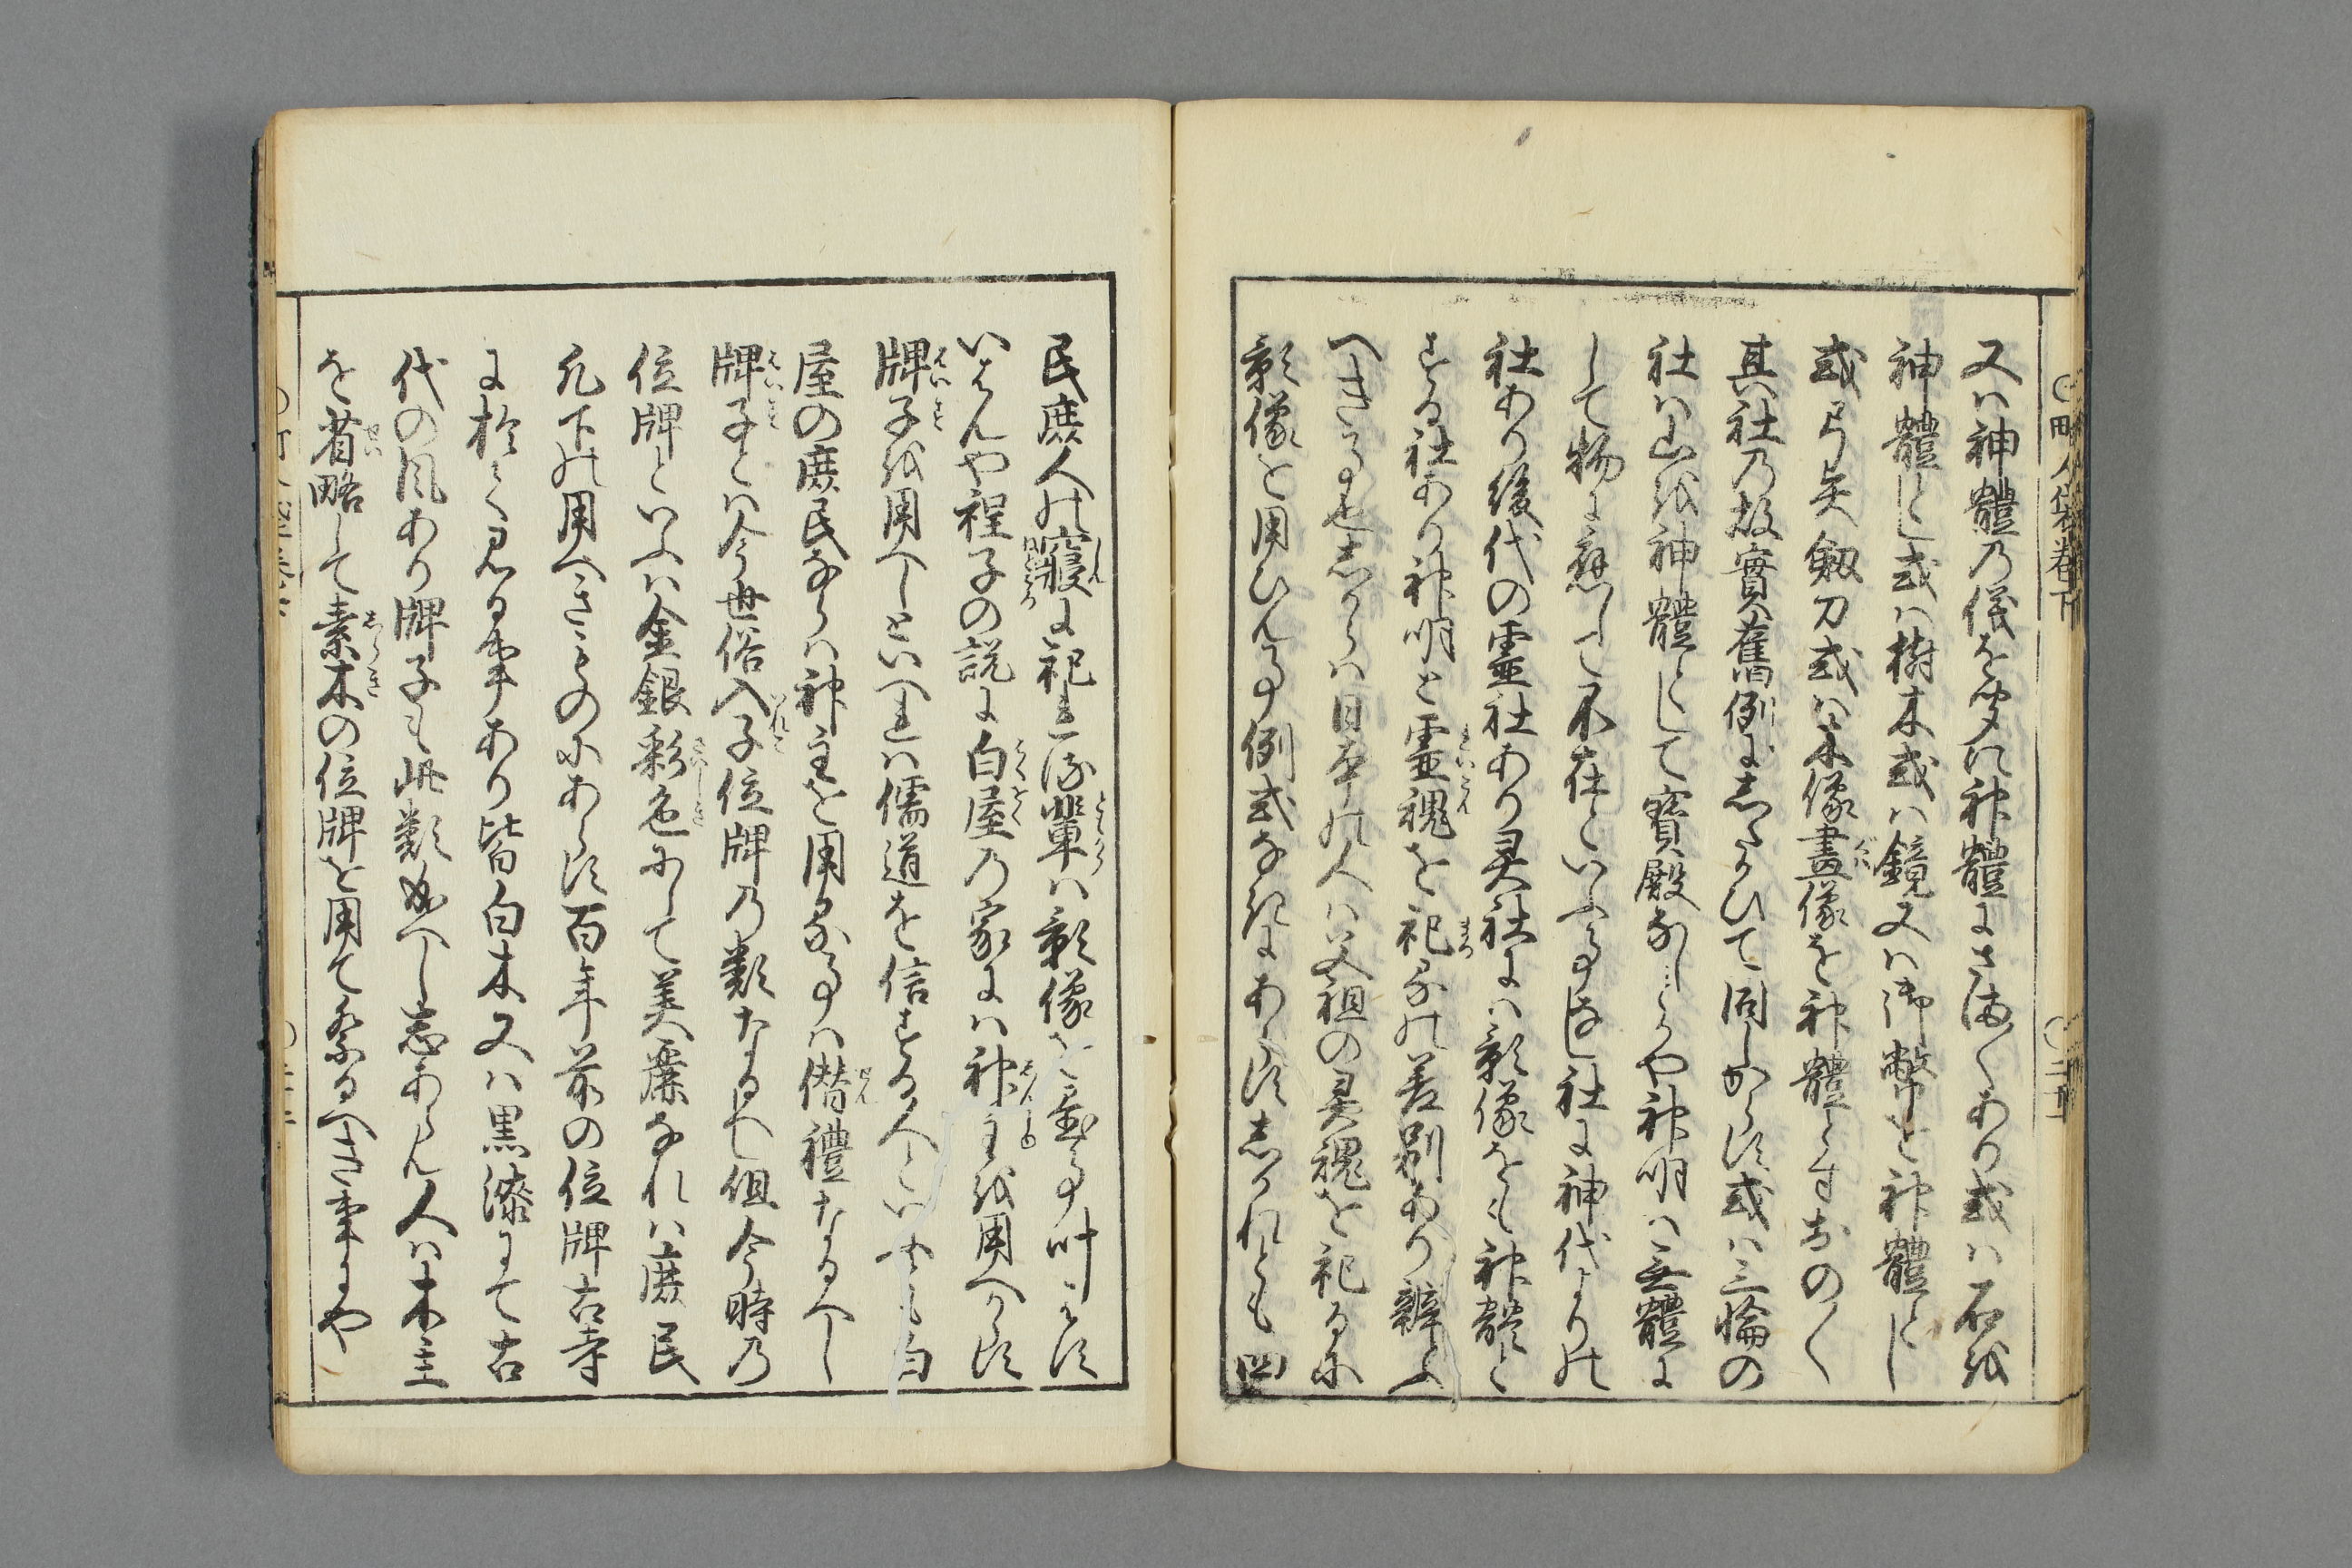 町人嚢巻下
又ハ神體乃儀を蒙に神體にさま〳〵あり或ハ石を
神體とし或ハ樹木或ハ鏡又ハ御幣を神體とし
或弓矢劔刀或ハ木像畫像を神體とすおの〳〵
其社乃故實舊例にしたかひて同しからす或ハ三輪の
社ハ山を神體として寶殿なしとや神明ハ無體に
して物に應して不在といふ事なし社に神代よりの
社あり後代の霊社あり灵社にハ影像をも神體と
する社あり神明と霊魂を祀るの差別あり辨ふ
へき事也しからハ日本の人ハ父祖の灵魂を祀るに
影像を用ひん事例式なきにあらすしかれとも四
民庶人の寢に祀られ輩ハ影像を畫事叶ハす
いはんや程子の説に白屋乃家にハ神主を用へからす
牌子を用へしといへれハ儒道を信する人といふとも白
屋の庶民ならハ神主を用る事ハ僣禮たるへし
牌子とハ今世俗入子位牌乃類たるへし但今時乃
位牌といふハ金銀彩色にして美麗なれハ庶民
凡下の用へきものにあらす百年前の位牌古寺
に於て見る事あり皆白木又ハ黒漆にて古
代の風あり牌子も此類成へし志あらん人ハ木主
を省略して素木の位牌を用て祭るへき事にや